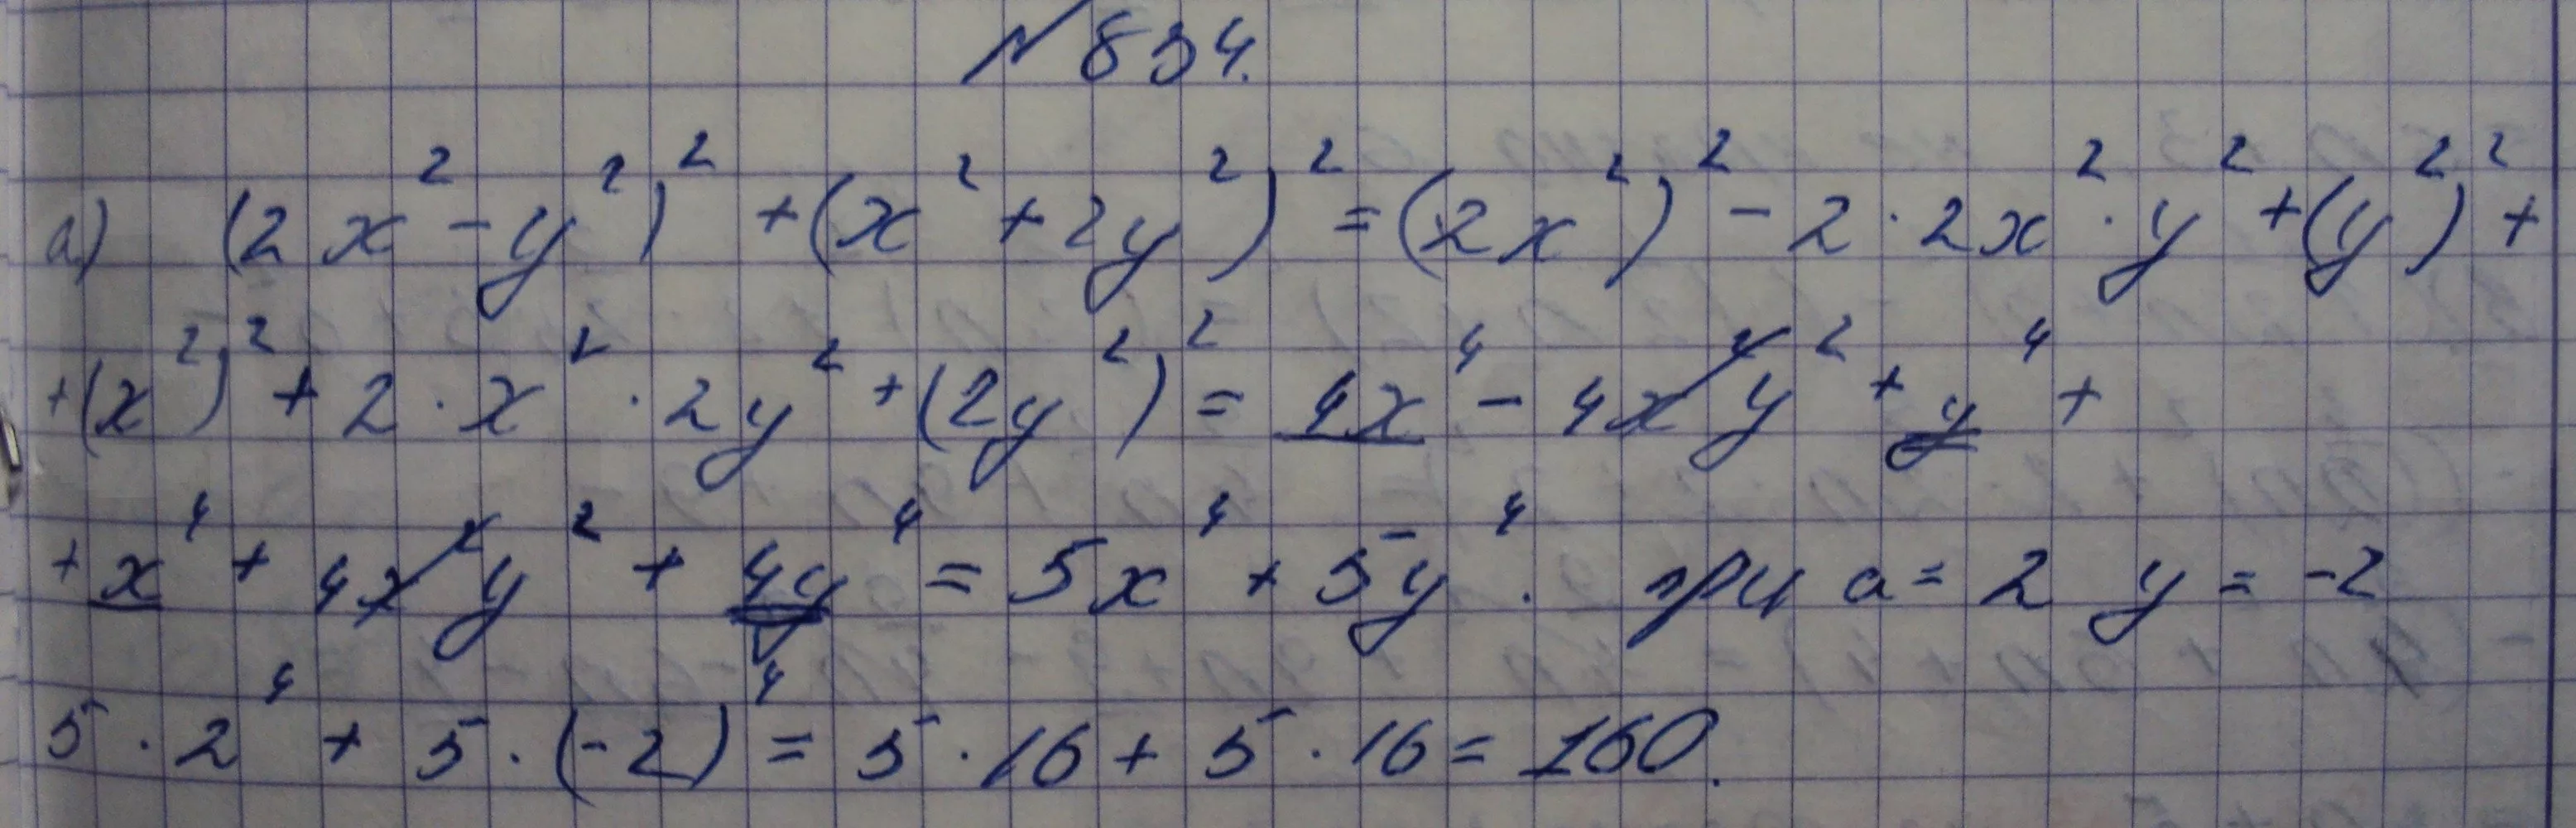 № 834.
а) (2x² - y²)² + (x² + 2y²)² = (2x²)² - 2 · 2x² · y² + (y²)² +
+ (x²)² + 2 · x² · 2y² + (2y²)² = 4x⁴ - 4x²y² + y⁴ +
+ x⁴ + 4x²y² + 4y⁴ = 5x⁴ + 5y⁴. при a = 2 y = -2
5 · 2⁴ + 5 · (-2)⁴ = 5 · 16 + 5 · 16 = 160.